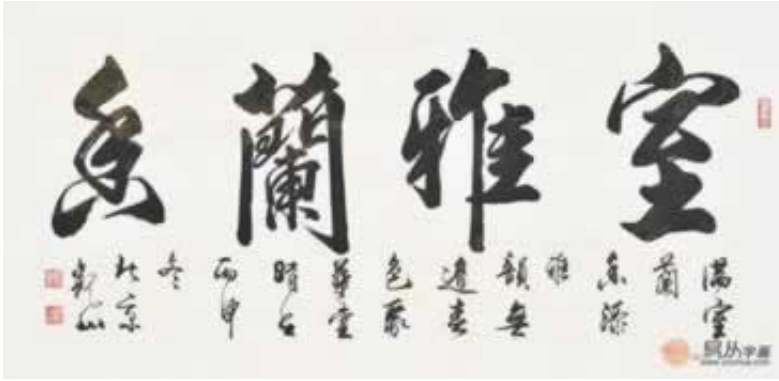 室雅蘭香
满室
蘭
香添
雅
韻無
邊春
色聚
華堂
丙申
冬
北京
易从字画